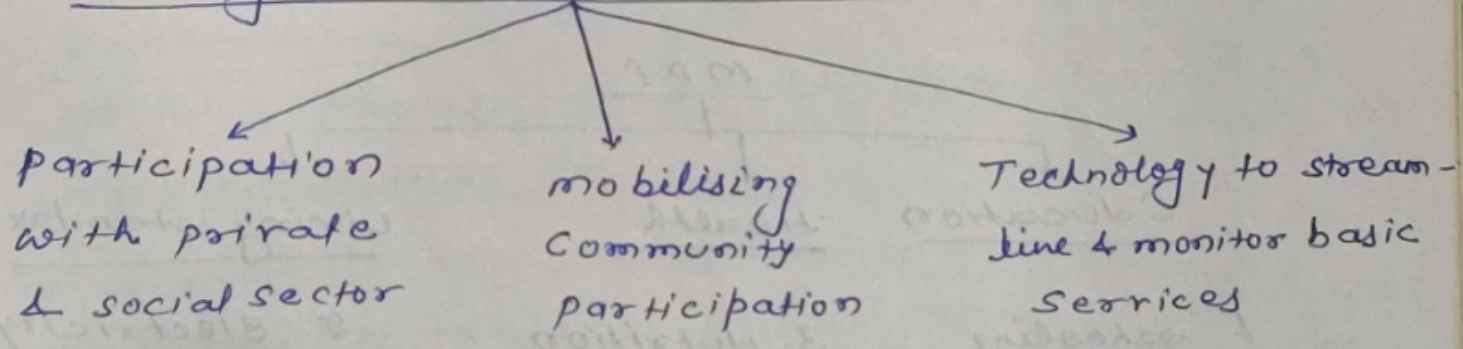 participation
with private
& social sector
mobilising
Community
participation
Technology to stream-
line & monitor basic
services